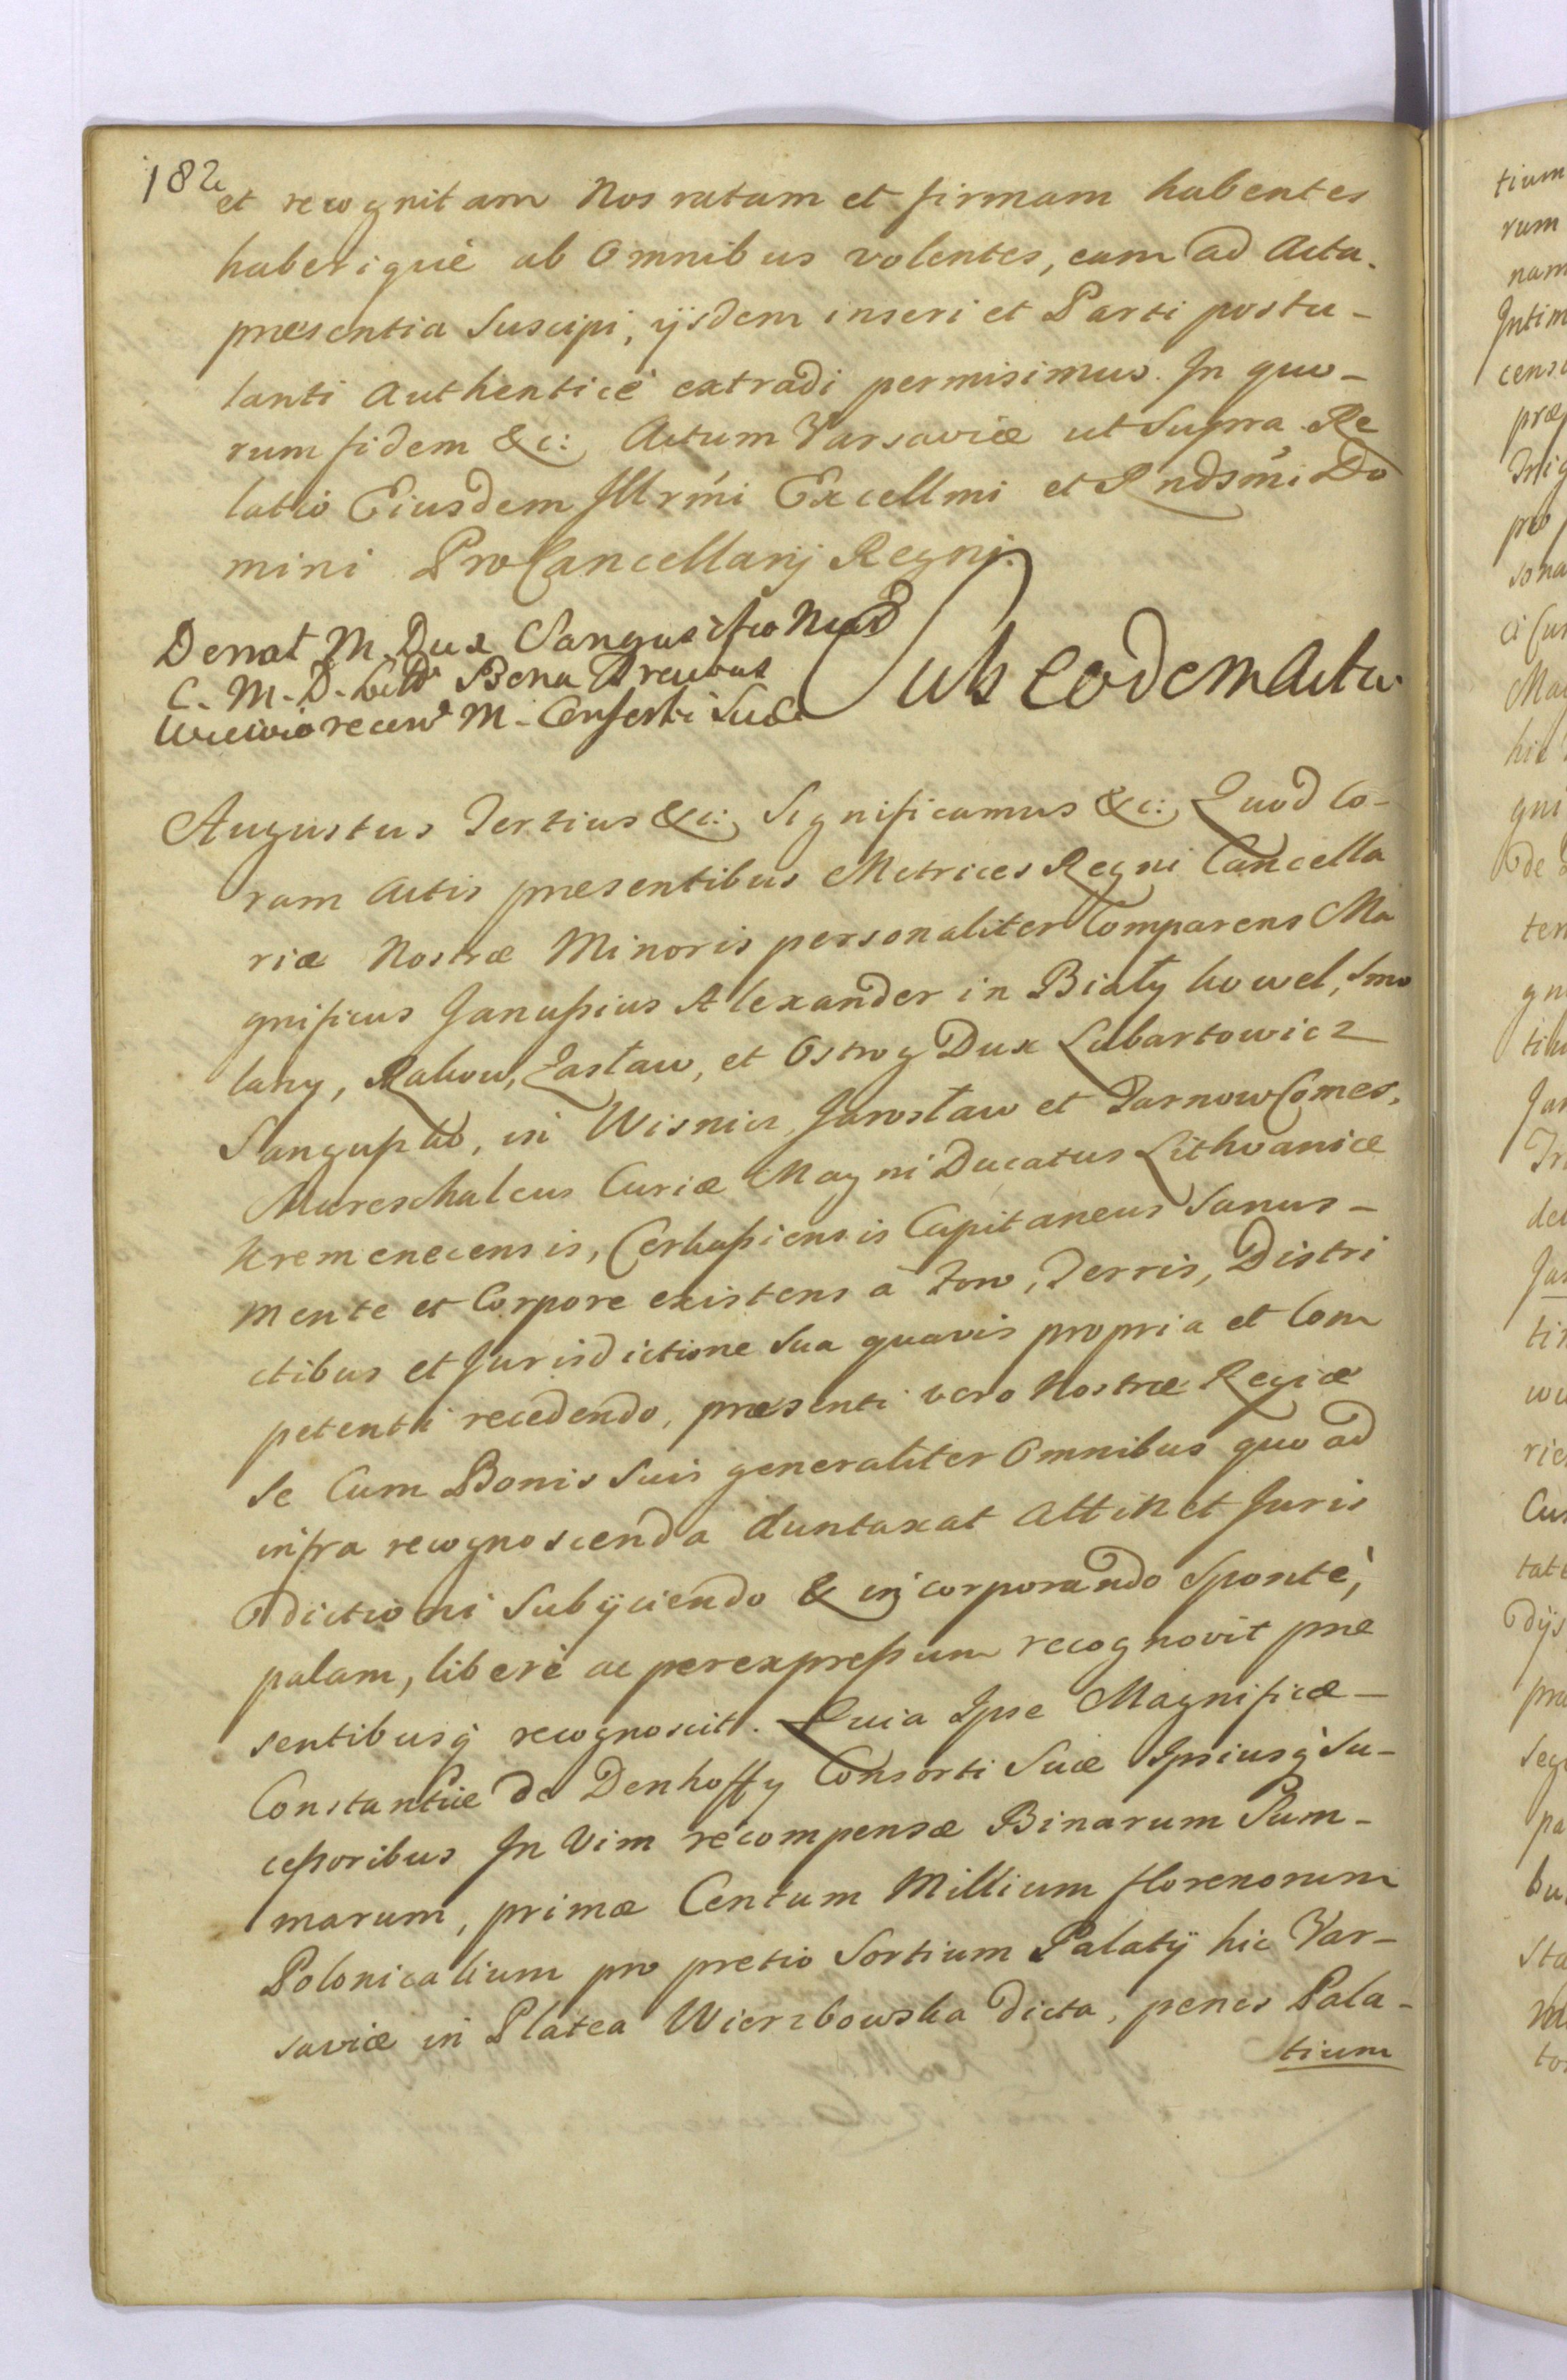 182
et recognitam Nos ratam et firmam habentes
haberiquè ab Omnibus volentes, eam ad Acta
præsentia Suscipi, ijsdem inseri et Parti postu-
lanti Authenticè extradi permisimus. In quo-
rum fidem &c: Actum Varsaviæ ut Supra. Re
latio Eiusdem Illrmi Excellmi et Rndsmi Do
mini ProCancellarij Regni.
Donat M. Dux Sanguszko
C. M. D. Litt Bona
M. Consorti Suæ
Sub eodem Actu
Augustus Tertius &c: Significamus &c: Quod Co-
ram Actis præsentibus Metrices Regni Cancella
riæ Nostræ Minoris personaliter Comparens Ma
gnificus Janussius Alexander in Biały Kowel, Smo
lany, Rakow, Zasław, et Ostrog Dux Lubartowicz
Sangussko, in Wisnicz, Jarosław et Tarnow Comes,
Mareschalcus Curiæ Magni Ducatus Lithvaniæ
Kremenecensis, Cerkassiensis Capitaneus Sanus-
Mente et Corpore existens à Foro, Terris, Distri
ctibus et Jurisdictione Sua quavis propria et Com
petenti recedendo, præsenti vero Nostræ Regiæ
Se Cum Bonis Suis generaliter Omnibus quo ad
infra recognoscenda duntaxat Attinet Juris
dictioni Subijciendo & incorporando Spontè,
palam, liberè ac per expressum recognovit præ
sentibusq̀ recognoscit. Quia Ipse Magnificæ-
Constantiæ de Denhoffy Consorti Suæ Ipsiusq̀ Su-
cessoribus In Vim recompensæ Binarum Sum-
marum, primæ Centum Millium florenorum
Polonicalium pro pretio Sortium Palatij hic Var-
saviæ in Platea Wierzbowska dicta, penes Pala-
tium